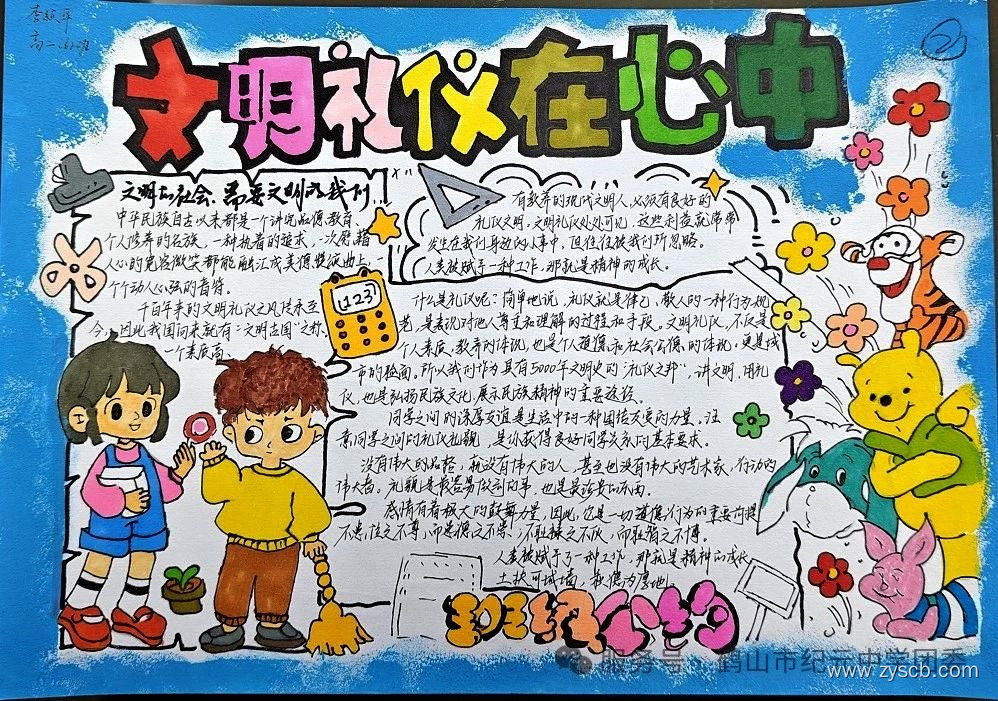 高一
文明礼仪在心中
文明的社会、需要文明的我们
中华民族自古以来都是一个讲究品德教育、
个人修养的名族，一种执着的追求，一次慰藉
人心的宽容微笑都能融汇成美德壁纹曲上，
个个动人心弦的音符。
千百年来的文明礼仪之风传承至
今，因此我国向来就有“文明古国”之称、
一个素质高、
有教养的现代文明人，必须有良好的
礼仪文明，文明礼仪处处可见，这些刹查就常常
发生在我们身边的小事中，但往往被我们所忽略。
人类被赋予一种工作，那就是精神的成长。
123
什么是礼仪呢？简单地说，礼仪就是律己、敬人的一种行为规
范，是表现对他人尊重和理解的过程和手段。文明礼仪，不仅是
个人素质、教养的体现，也是个人道德和社会公德的体现，更是城
市的脸面，所以我们作为具有5000年文明史的“礼仪之邦”，讲文明、用礼
仪，也是弘扬民族文化、展示民族精神的重要途径。
同学之间的深厚友谊是生活中的一种团结友爱的力量。注
意同学之间的礼仪礼貌，是你获得良好同学关系的基本要求。
没有伟大的品格，就没有伟大的人，甚至也没有伟大的艺术家，行动的
伟大者。礼貌是最容易做到的事，也是最珍贵的东西。
感情有着极大的鼓舞力量，因此，它是一切道德行为的重要前提
不患位之不尊，而患德之不崇；不耻禄之不伙，而耻智之不博。
人类被赋予了一种工作，那就是精神的成长
土扶可城墙，积德为厚地。
班级公约
服务号·鹤山市纪元中学团委
www.zyscb.com